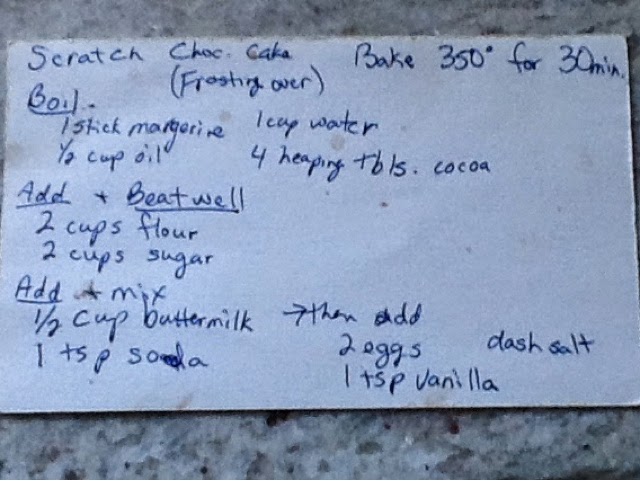 Scratch Choc. Cake Bake 350° for 30min.
(Frosting over)
Boil.
1 stick margerine 1 cup water
1/2 cup oil 4 heaping tbls. cocoa
Add + Beat well
2 cups flour
2 cups sugar
Add + mix
1/2 cup buttermilk → then add
1 tsp soda 2 eggs dash salt
1 tsp vanilla